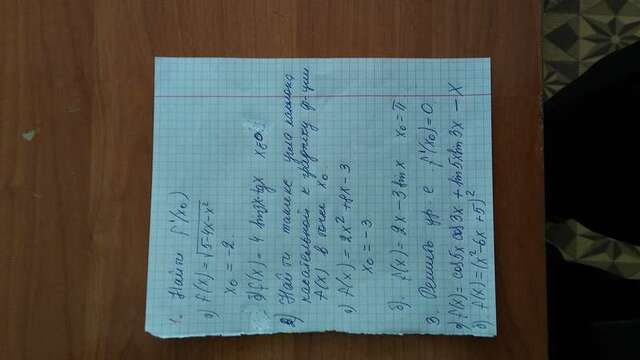 1. Найти f'(x₀)
а) f(x) = √5-4x-x²
x₀ = -2.
б) f(x) = 4 sin3x·tgx x₀=0
2) Найти тангенс угла наклона
касательной к графику ф-ции
f(x) в точке x₀
а) f(x) = 2x² + 8x - 3
x₀ = -3
б). f(x) = 2x - 3 sin x x₀ = π
3. Решить ур-е f'(x₀) = 0
а) f(x) = cos5x cos3x + sin5x sin3x - x
б) f(x) = (x² - 6x + 5)²